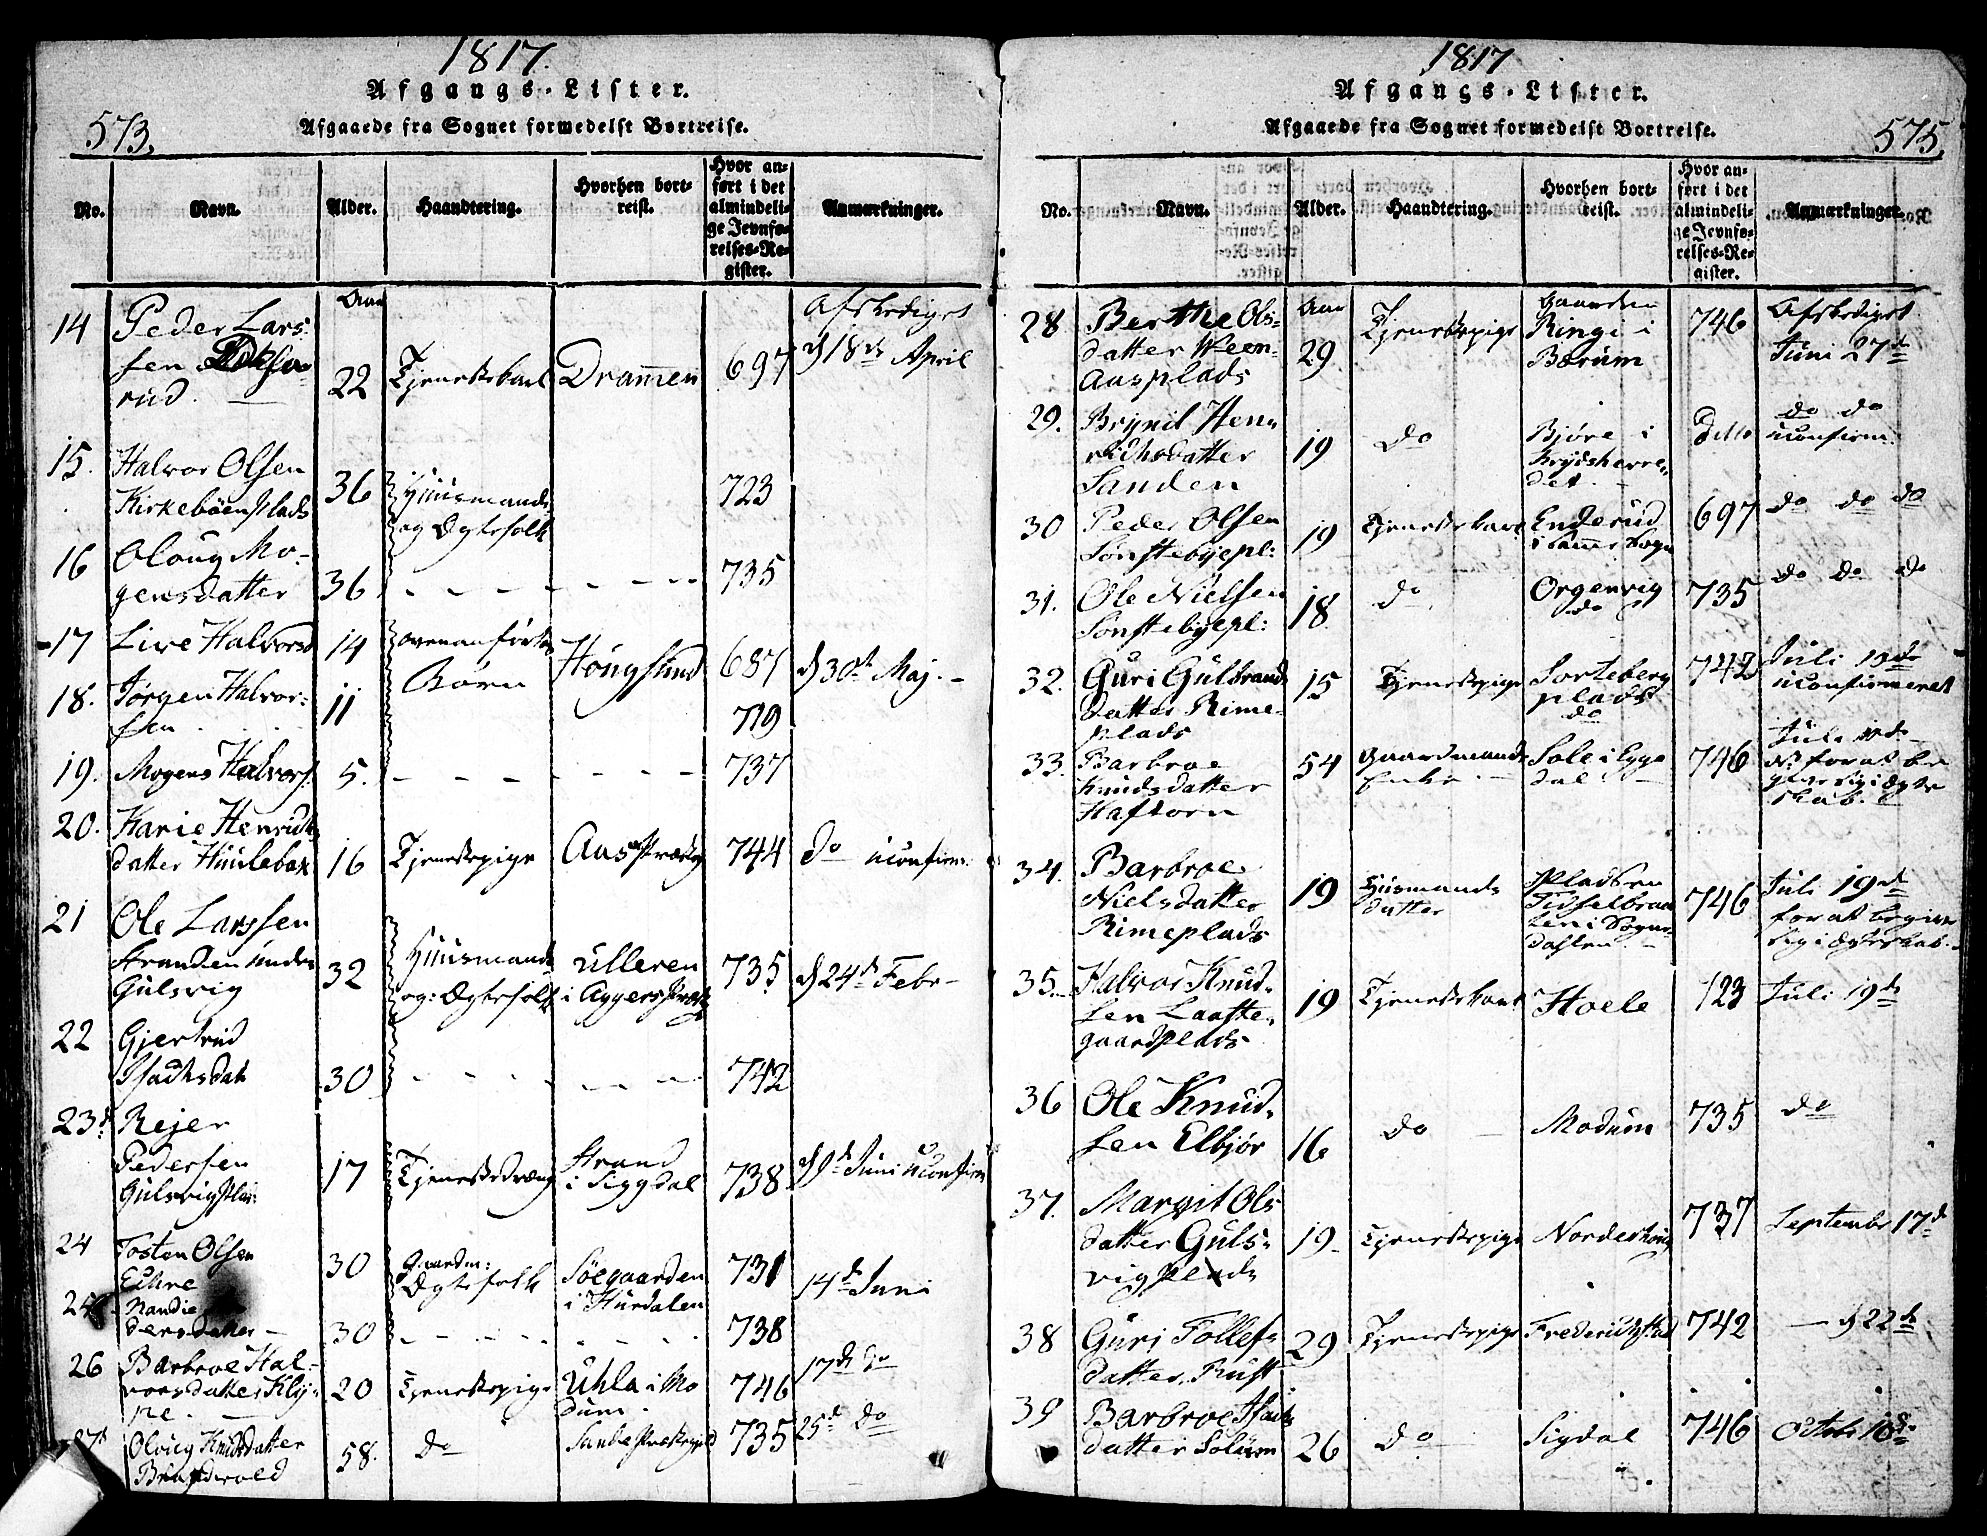 1817.
Afgangs-Lister.
573.
Afgaaede fra Sognet formedelst Bortreise.
No.
Navn.
Alder.
Haandtering.
Hvorhen bort-
reist.
Hvor an-
ført i det
almindeli-
ge Jevnfø-
relses-Re-
gister.
Anmærkninger.
14
Peder Lars
sen
rud.
Aar
22
Tjenestekarl
Drammen
697
Afskediget
d 18de April
15.
Halvor Olsen
Kirkebøenplads
36
Huusmands
og Ægtefolk
723
16
Oloug Mo-
gensdatter
36
735
17
Live Halvorsd
14
ovenanførte
Børn
Hougsund
687
d 30te Maj. -
18.
Jørgen Halvor-
sen
11
719
19.
Mogens Halvors.
5.
737
20.
Karie Henrichs
datter Huulebak
16
Tjenestepige
Aas Præsteg
744
do uconfirm.
21
Ole Larssen
Stranden under
Gulsvig
32
Huusmands
og Ægtefolk
Ulleren
i Aggers Præsteg
735
d 24de Febr -
22
Gjertrud
Isachsdat
30
742
23de
Rejer
Pedersen
Gulsvigplds
17
Tjenestedreng
Strand
i Siggdal
738
d 9de Juni uconfirm
24
Tosten Olsen
Echre
30
Gaardm:
Ægtefolk
Söegaarden
i Hurdalen
731
14de Juni
25
Nandie
dersdatter -
30
738
26
Barbroe Hal-
vorsdatter Kly-
pe. -
20
Tjenestepige
Uhla i Mo
dum.
746
17de do
27de
Oloug Knudsdatter
58.
do
Sande Præstegield
735
25de do
1817
Afgangs-Lister.
575.
Afgaaede fra Sognet formedelst Bortreise.
No.
Navn.
Alder.
Haandtering.
Hvorhen bort-
reist.
Hvor an-
ført i det
almindeli-
ge Jevnfø-
relses-Re-
gister.
Anmærkninger.
28
Berthe Ols-
datter Ween-
Aasplads
Aar
29
Tjenestepige
Gaarden
Ringi i
Bærum
746
Afskediget
Juni 27de
29.
Brynil Hen-
richsdatter
Sanden
19
do
Bjøre i
Krydsherre-
det. -
Ditto
do do
uconfirm.
30
Peder Olsen
Sønstebyepl:
19
Tjenestekarl
Enderud
i samme Sogn
697
do do do
31.
Ole Nielsen
Sønstebyepl:
18
do
Orgenvig
do
735
do do do
32.
Guri Gulbrands
datter Rime-
plads
15
Tjenestepige
Sorteberg
plads
do
742
Juli 19de
uconfirmeret
33.
Barbroe
Knudsdatter
Haftorn
54
Gaardmands
Enke. -
Sole i Egge
dal -
746
Juli
for at be
give sig i Ægte
skab.
34.
Barbroe
Nielsdatter
Rimeplads
19
Husmands
datter
Pladsen
Tidselbraa
ten i Sogne-
dahlen. -
746
Juli 19de
for at begive
sig i Ægteskab. -
35.
Halvor Knud-
sen Laafte-
gaardplads
19
Tjenestekarl
Hoele
123
Juli 19de
36
Ole Knud-
sen Elbjør
16
do
Modum
735
do
37.
Margit Ols
datter Guls-
vigplads
19
Tjenestepige
Norderhoug
737
Septembr 17de
38
Guri Tollefs
datter. Rust
29
Tjenestepige
Frederichstad
742
- d 22de
39
Barbroe Isachs
datter Solum
26
do
Sigdal
746
Octobr 10de